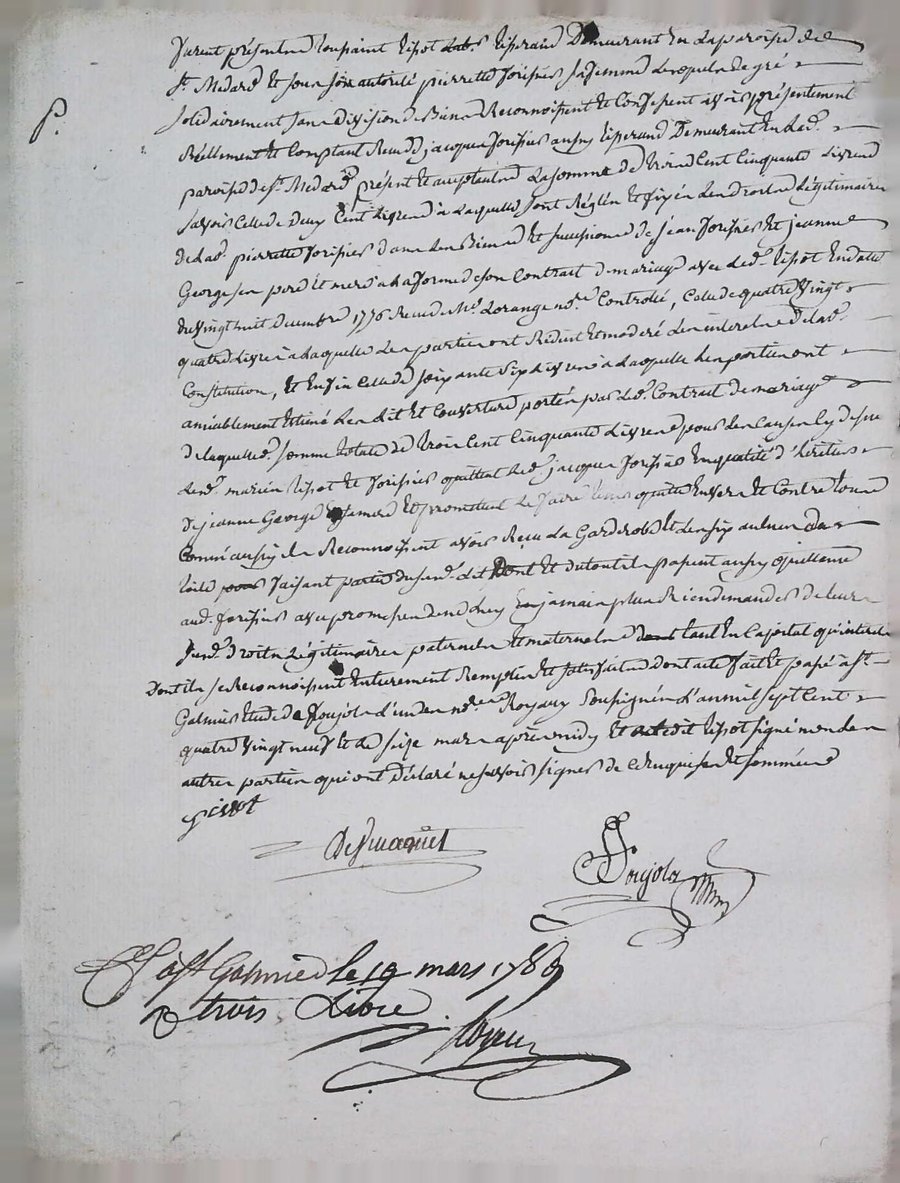 P.
furent présents toussaint tissot lab.r tisserand Demeurant En la paroisse de
St. Medard Et sous son autorité pierrette forissier sa femme lesquels de gré
solidairement sans division de Biens Reconnoissent Et Confessent avoir présentement
Réellement Et Comptant Reçu de jacques forissier aussy tisserand Demeurant En lad.
paroisse de St. Medard présent Et acceptant la somme de trois Cent Cinquante Livres
savoir Celle de deux Cent Livres à laquelle sont Réglés Et fixés les droits Légitimaires
de lad. pierrette forissier dans les Biens Et successions de jean forissier Et jeanne
George ses pere Et mere a la forme de son Contrat de mariage avec led. tissot En datte
du vingt huit decembre 1776 Reçu de Me. Lorange no.re Controllé, Celle de quatre vingt
quatre Livres à laquelle les parties ont Réduit Et modéré les interets de lad.
Constitution, Et Enfin Celle de soixante Six Livres à laquelle les parties ont
amiablement Estimé les lit Et Couverture portés par led. Contrat de mariage
de laquelle somme totale de trois Cent Cinquante Livres pour les Causes Cy dessus
lesd. mariés tissot Et forissier quittent led. jacques forissier En qualité d'héritier
de jeanne George sa mere Et promettent le faire tenir quitte Envers Et Contre tous
Comm'aussy ils Reconnoissent avoir Reçu la Garderobe Et les six aulnes de
toile faisant partie dud. lit Dont Et du tout ils passent aussy quittance
aud. forissier avec promesse de ne luy En jamais plus Rien demander de leurs
susd. droits Légitimaires paternels Et maternels tant En Capital qu'interets
Dont ils se Reconnoissent Entierement Remplis Et satisfaits dont acte fait Et passé à St.
Galmier Etude de Poujola l'un des no.res Royaux soussignés l'an mil sept Cent
quatre vingt neuf Et le seize mars après midy Et a led. tissot signé non les
autres parties qui ont déclaré ne savoir signer de Ce Enquises Et sommées
tissot
Poujola
Cé à St Galmier le 19 mars 1789
R trois Livre